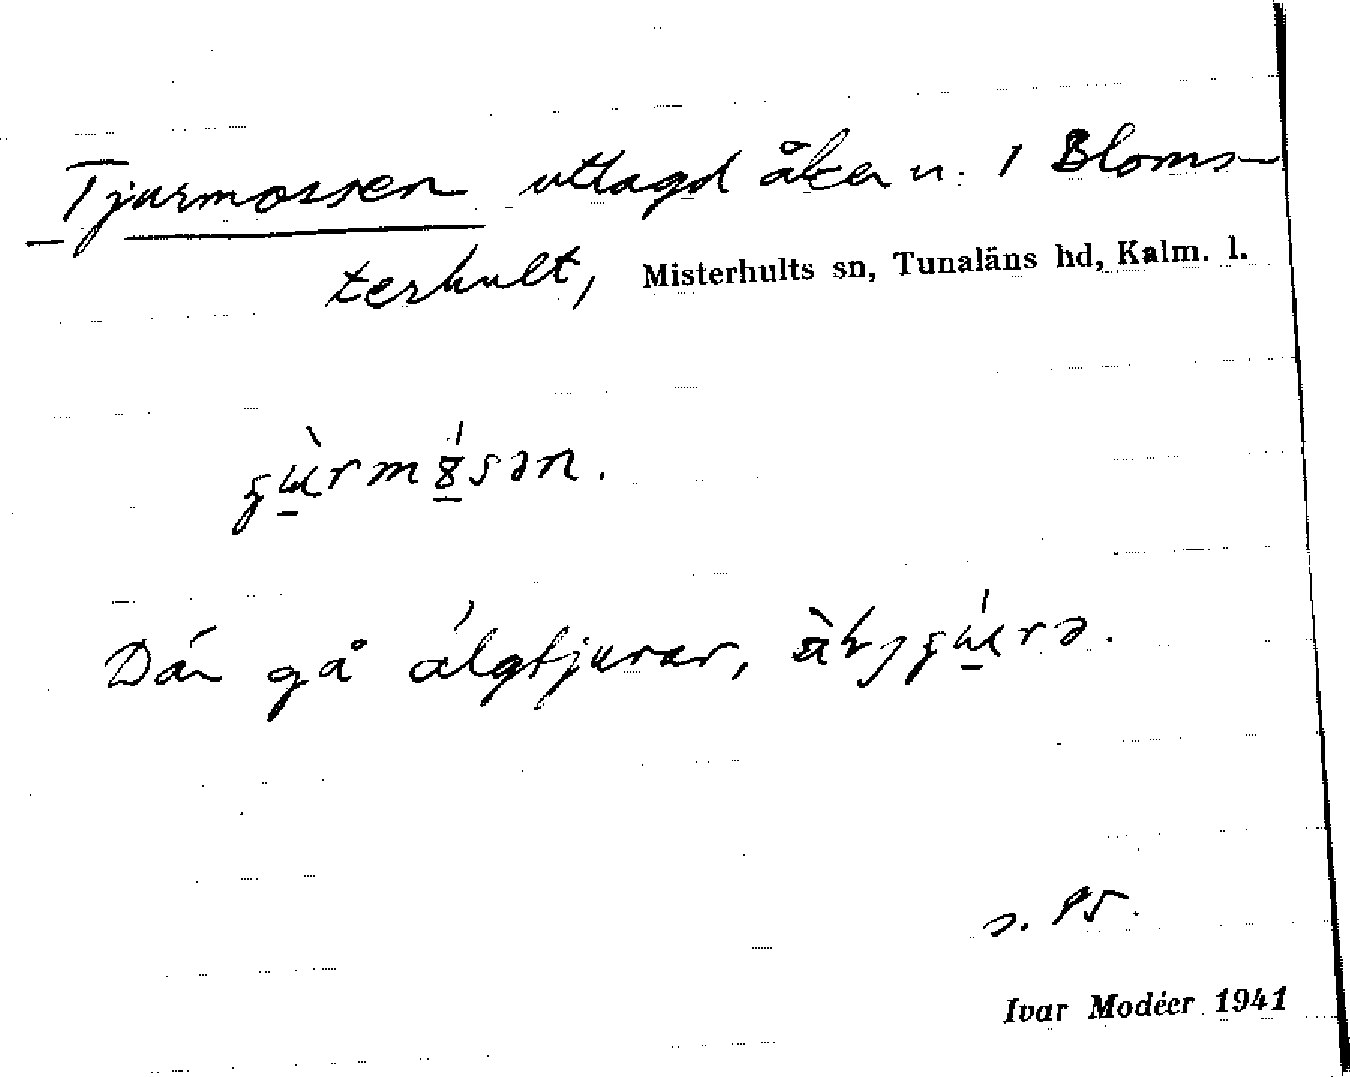 Tjurmossen utlagd åker u. 1 Bloms-
terhult, Misterhults sn, Tunaläns hd, Kalm. l.
Där gå älgtjurar,
s. 85.
Ivar Modéer 1941